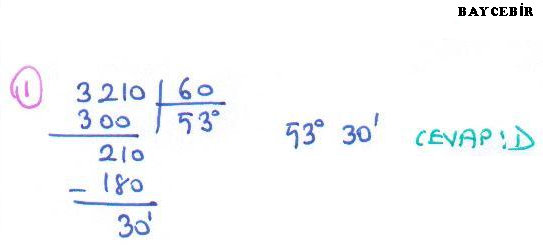 BAY CEBİR
1 3210 | 60
300 53°
210
- 180
30'
53° 30' CEVAP: D